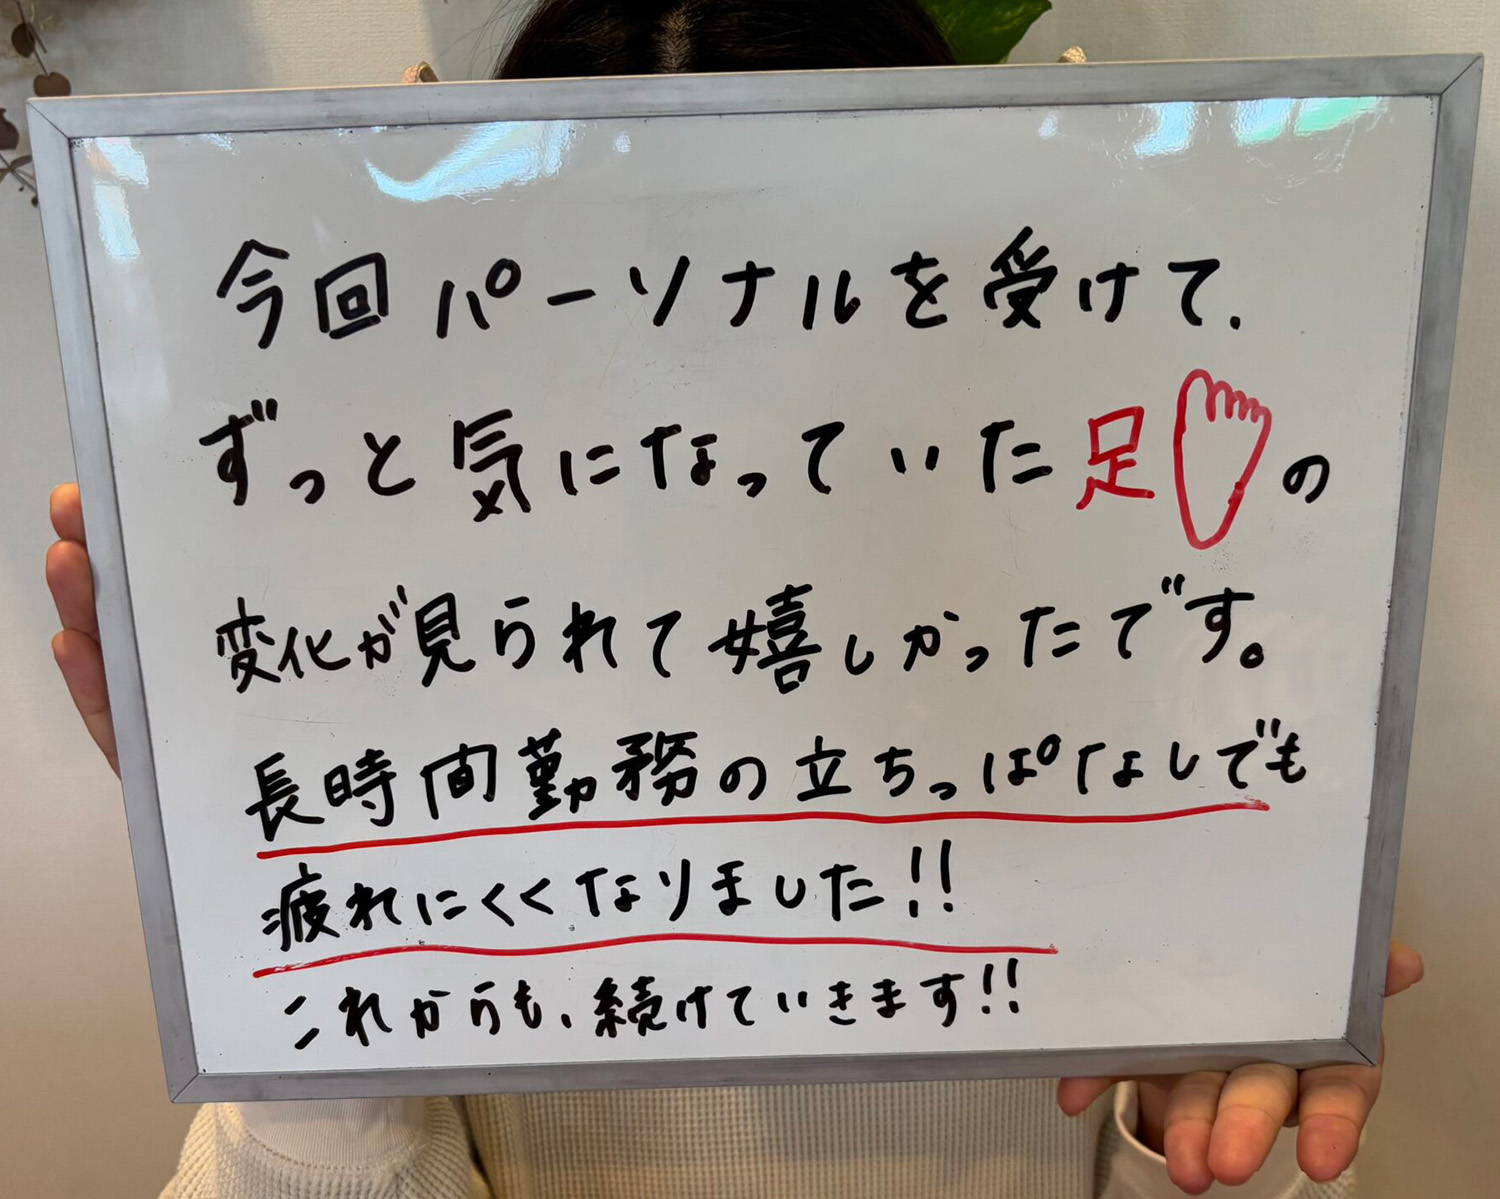 今回パーソナルを受けて、
ずっと気になっていた足の
変化が見られて嬉しかったです。
長時間勤務の立ちっぱなしでも
疲れにくくなりました!!
これからも、続けていきます!!